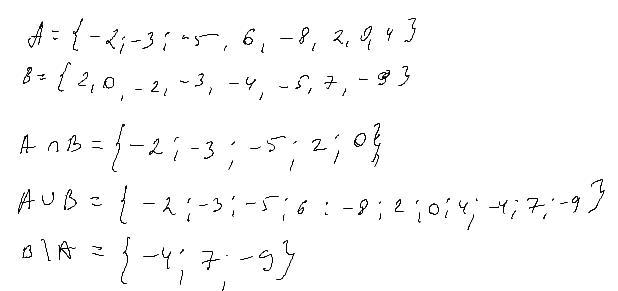 A = { -2; -3; -5, 6, -8, 2, 0, 4 }
B = { 2, 0, -2, -3, -4, -5, 7, -9 }
A ∩ B = { -2; -3; -5; 2; 0 }
A ∪ B = { -2; -3; -5; 6; -8; 2; 0; 4; -4; 7; -9 }
B \ A = { -4; 7; -9 }